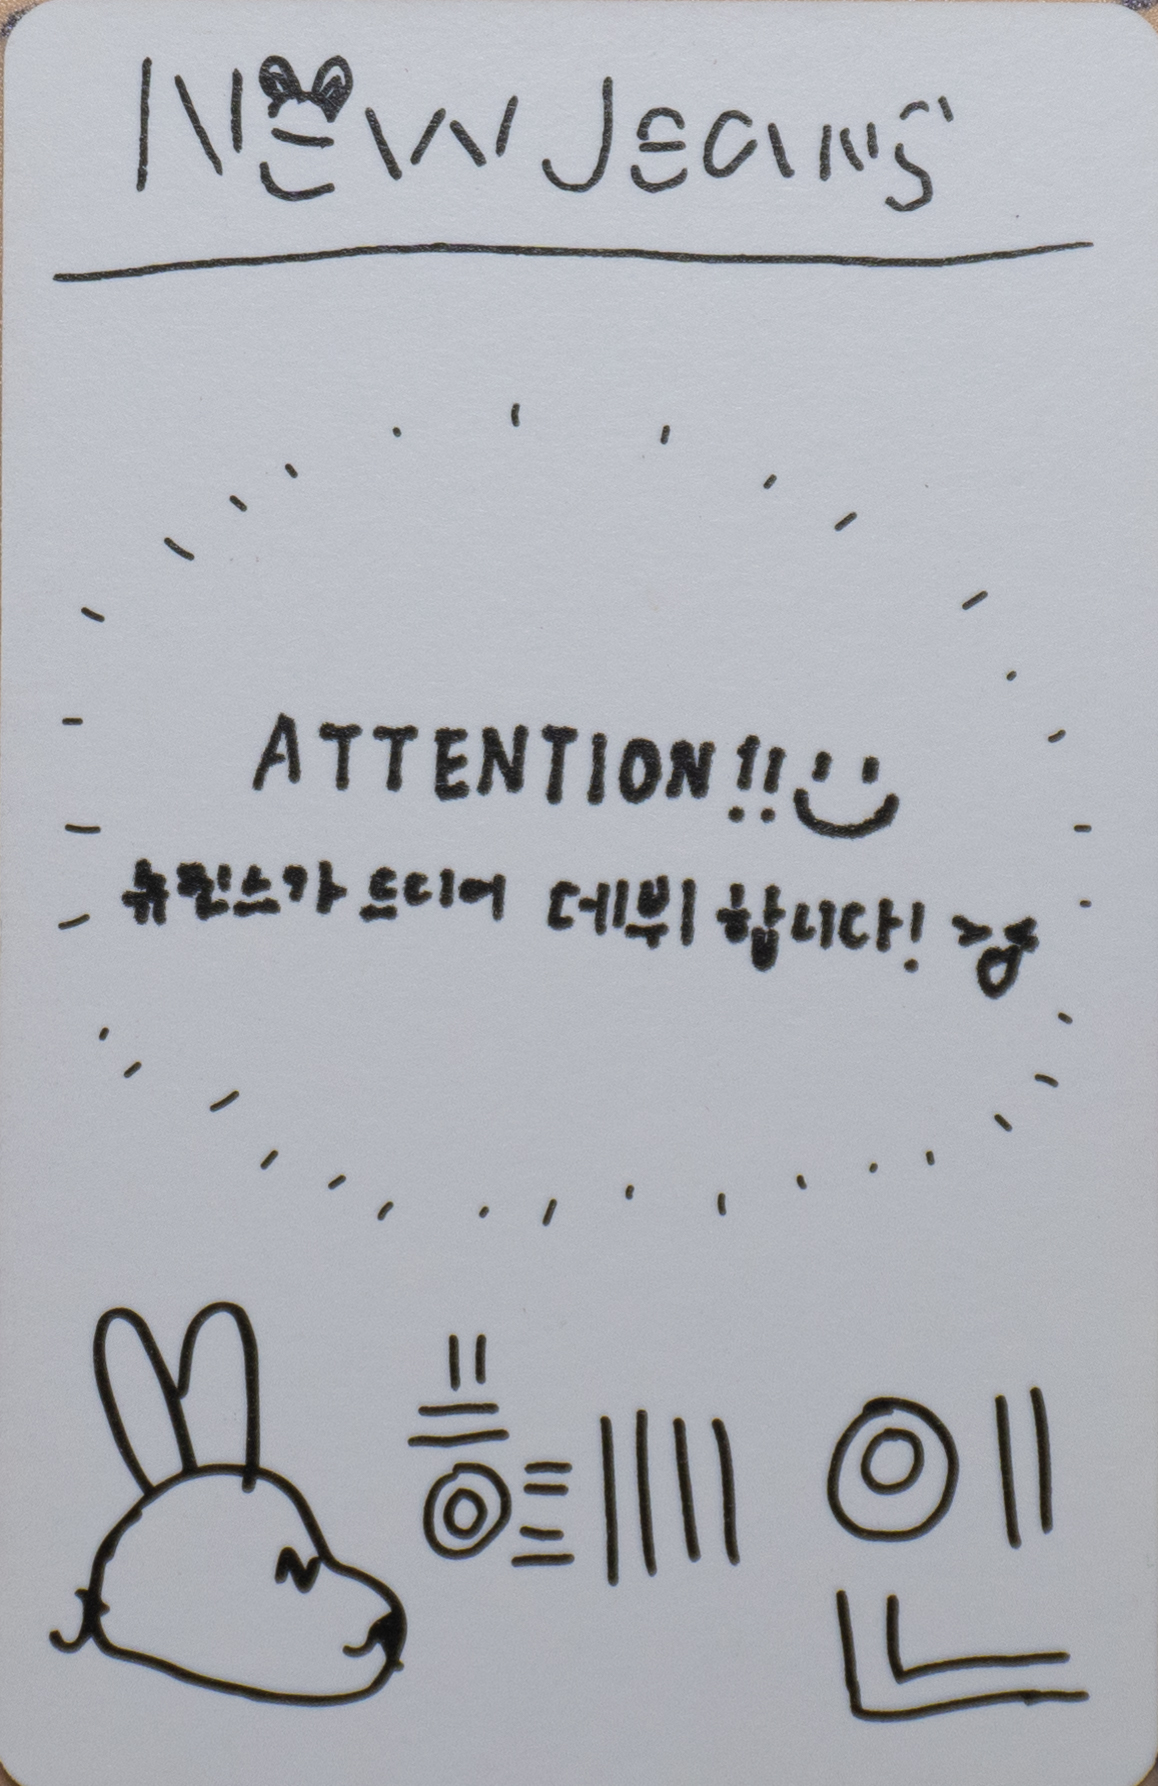 New Jeans
ATTENTION!!
뉴진스가 드디어 데뷔 합니다!
혜인